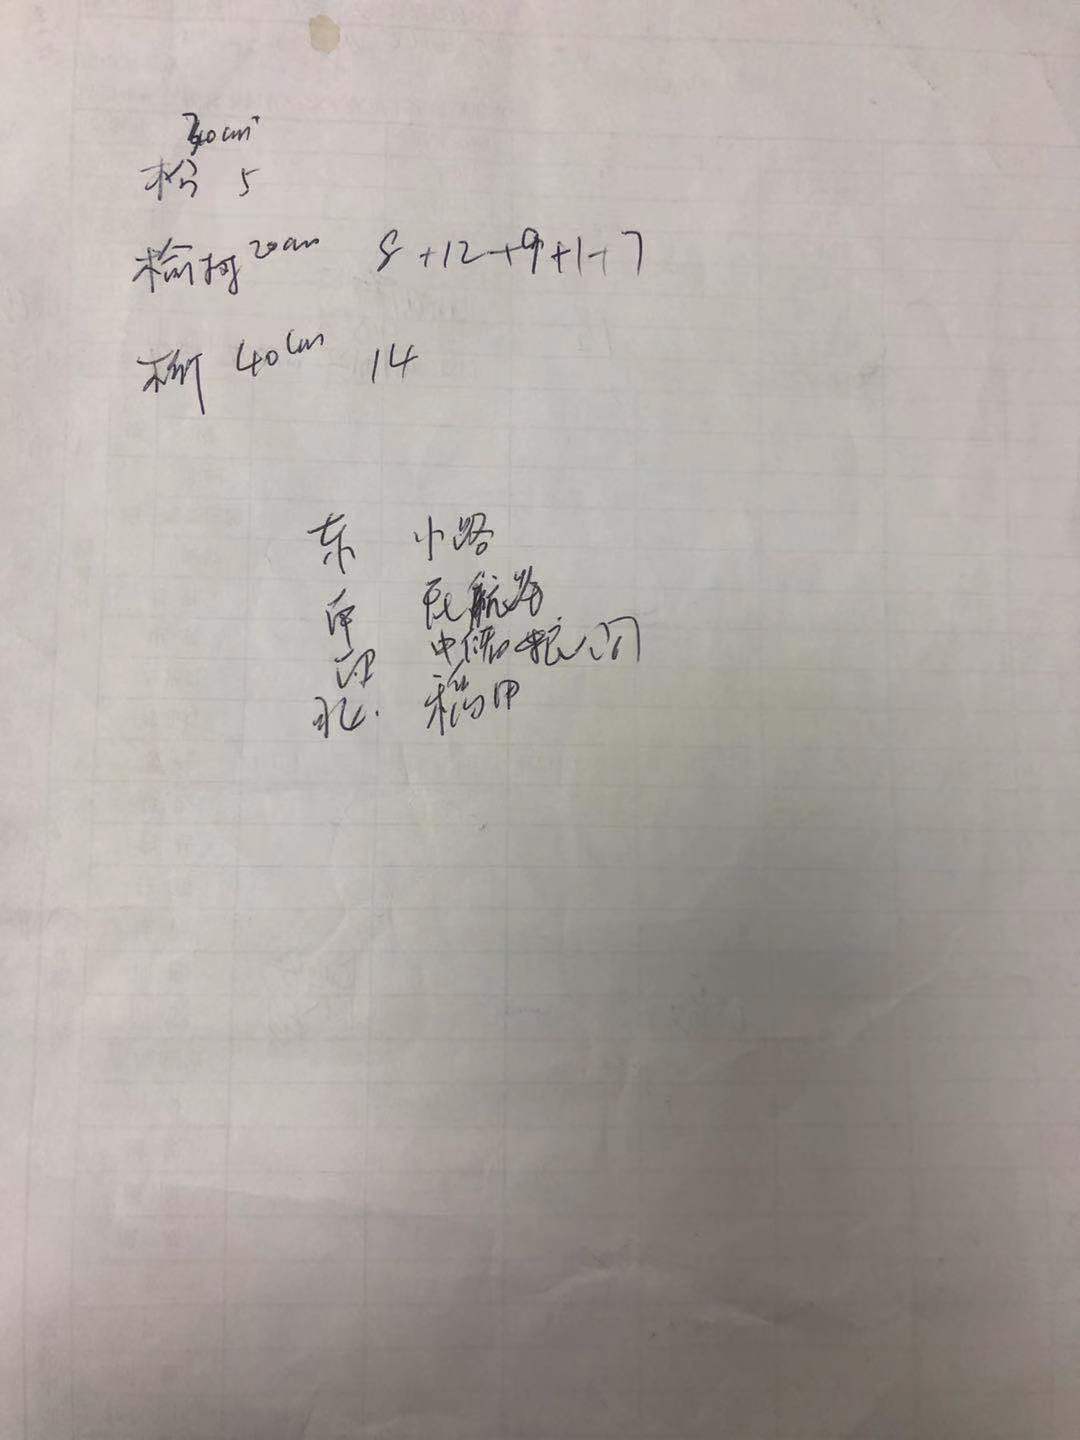 40cm
松 5
榆树 20cm 8+12+9+1+7
柳 40cm 14
东 小路
南 航
西 中储粮
北. 稻田